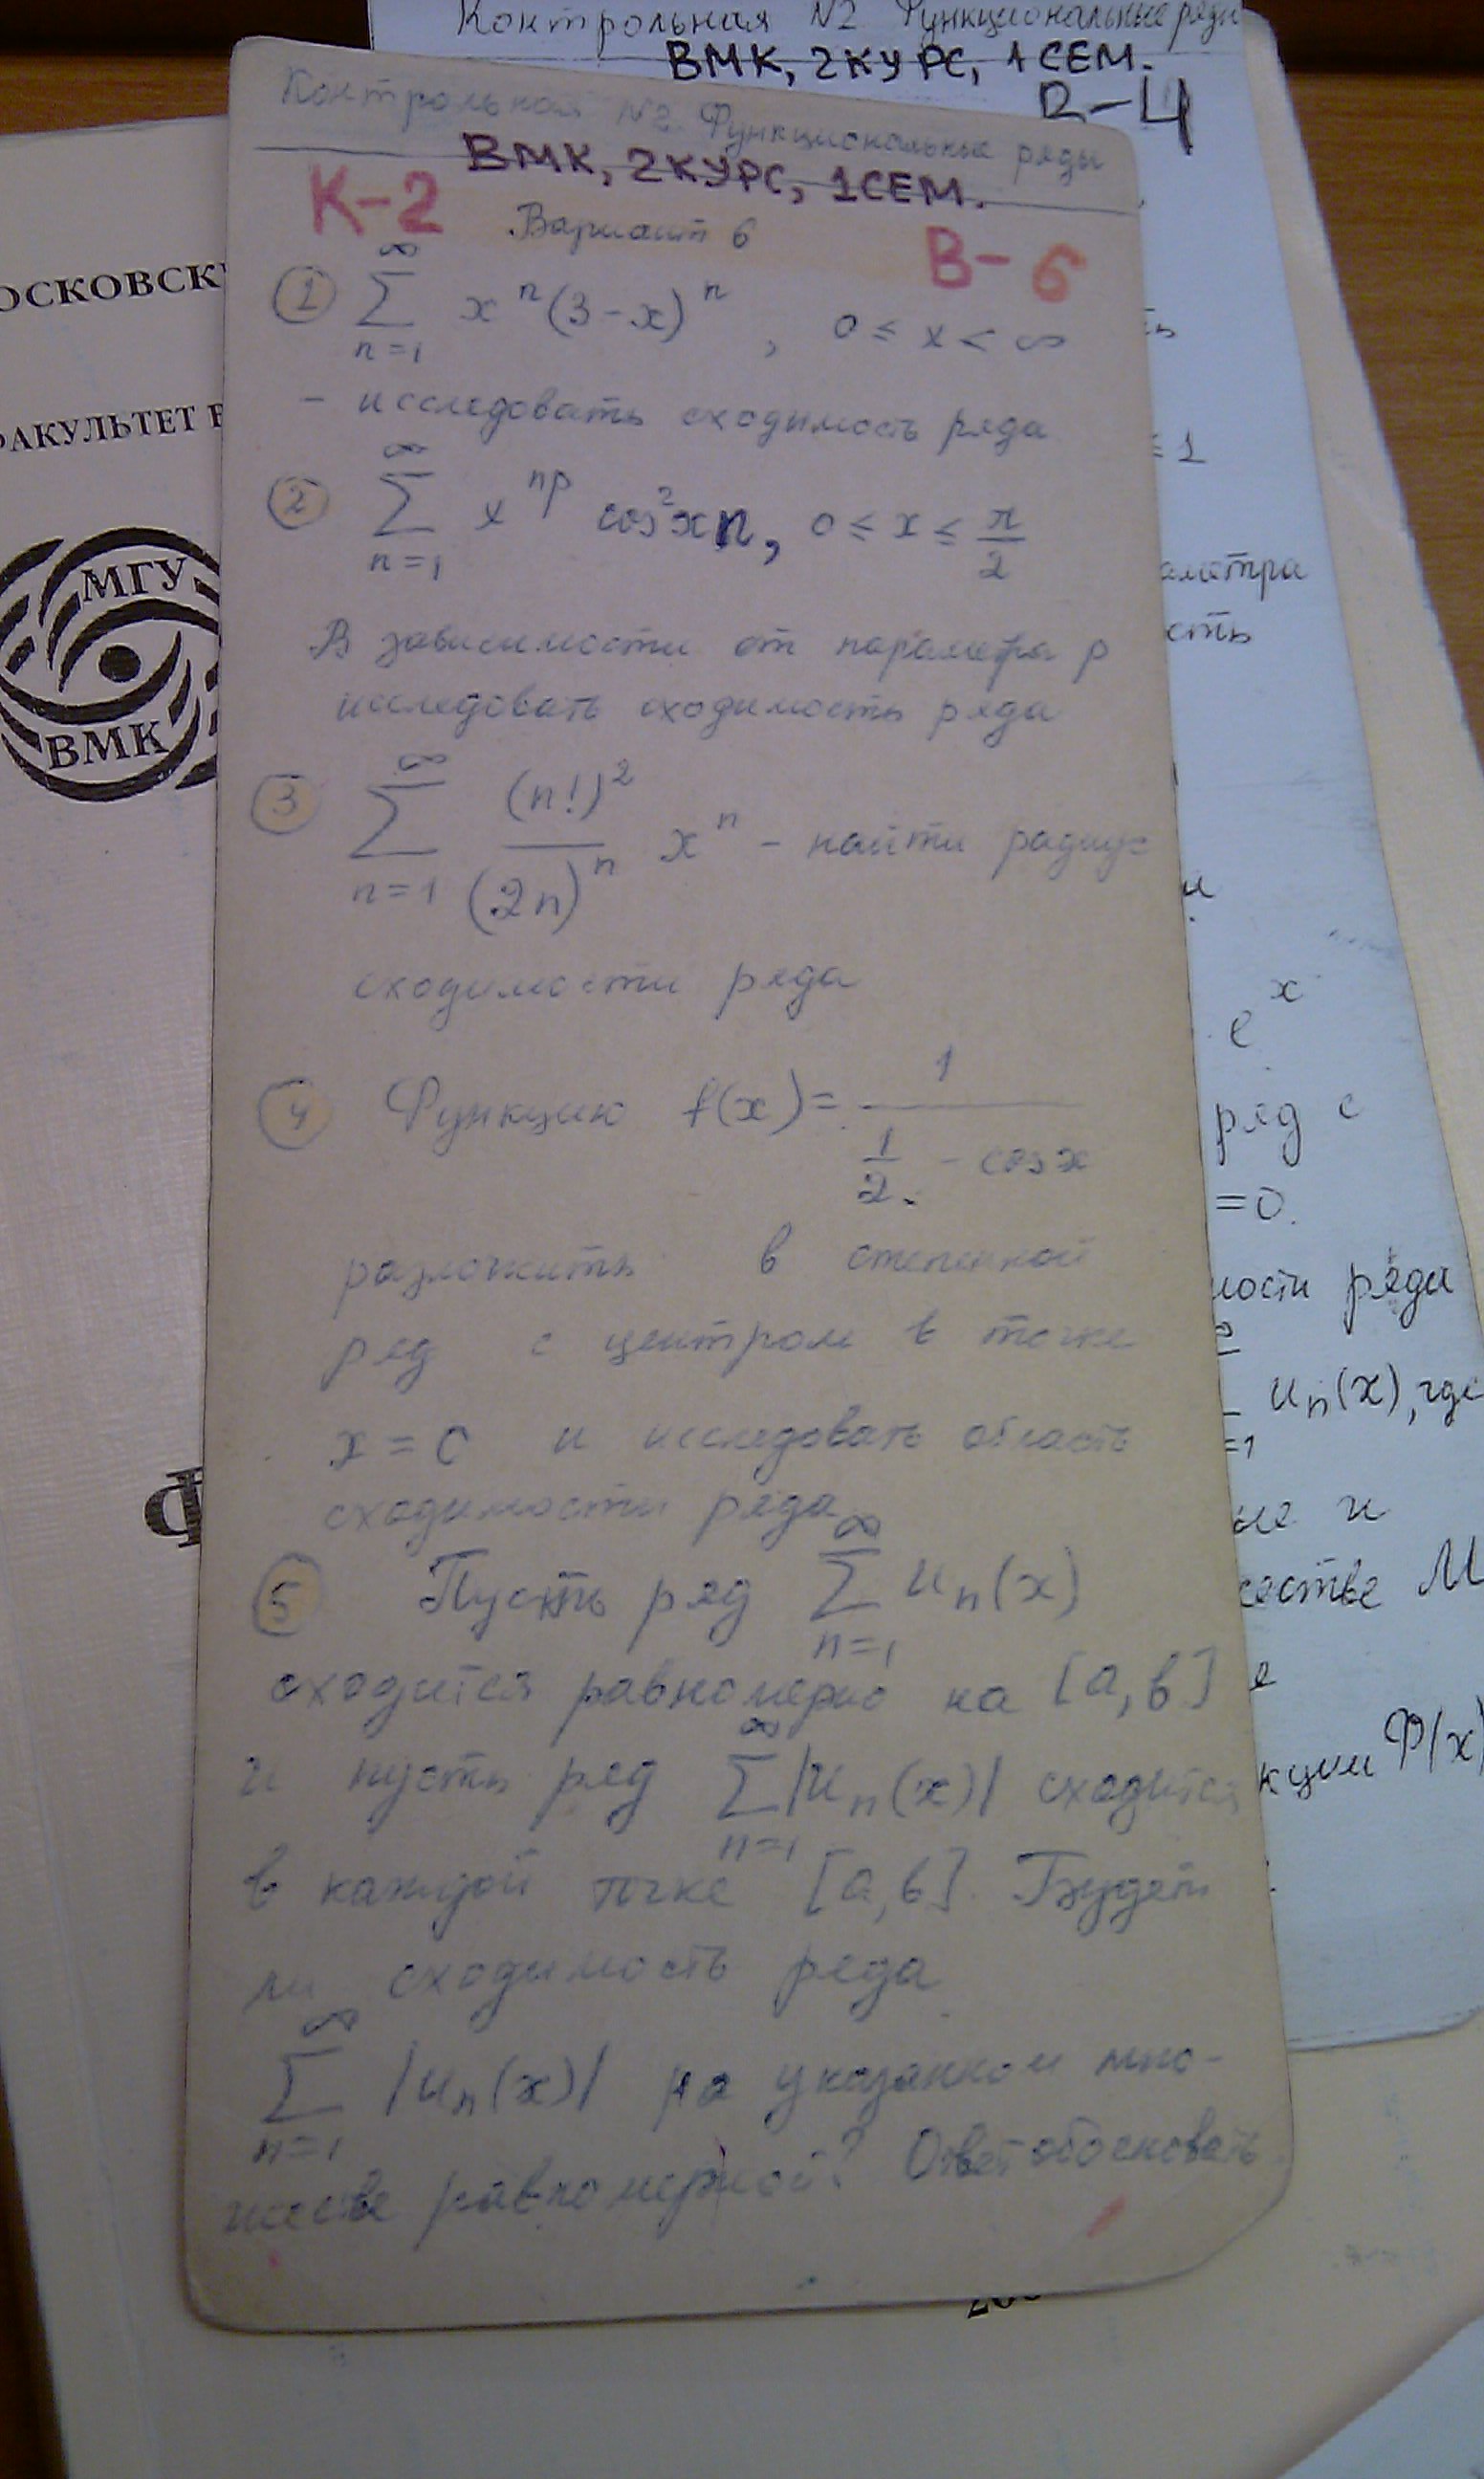 Контрольная №2 Функциональные ряды
ВМК, 2 КУРС, 1 СЕМ.
В-4
Контрольная №2. Функциональные ряды
ВМК, 2 КУРС, 1 СЕМ.
К-2 Вариант 6 В-6
① ∞ ∑ n=1 x^n (3-x)^n , 0 ≤ x < ∞
- исследовать сходимость ряда
② ∞ ∑ n=1 x^{np} cos²xn, 0 ≤ x ≤ π/2
В зависимости от параметра p
исследовать сходимость ряда
③ ∞ ∑ n=1 (n!)²/(2n)^n x^n - найти радиус
сходимости ряда
④ Функцию f(x) = 1/(1/2 - cos x)
разложить в степенной
ряд с центром в точке
x = 0 и исследовать область
сходимости ряда
⑤ Пусть ряд ∞ ∑ n=1 u_n(x)
сходится равномерно на [a, b]
и пусть ряд ∞ ∑ n=1 |u_n(x)| сходится
в каждой точке [a, b]. Будет
ли сходимость ряда
∞ ∑ n=1 |u_n(x)| на указанном мно-
жестве равномерной? Ответ обосновать.
ОСКОВСК
АКУЛЬТЕТ В
МГУ
ВМК
Ф
≤ 1
аметра
сть
e^x
ряд с
=0.
мости ряда
u_n(x), где
=1
ые и
жестве M
е
кции Φ(x)